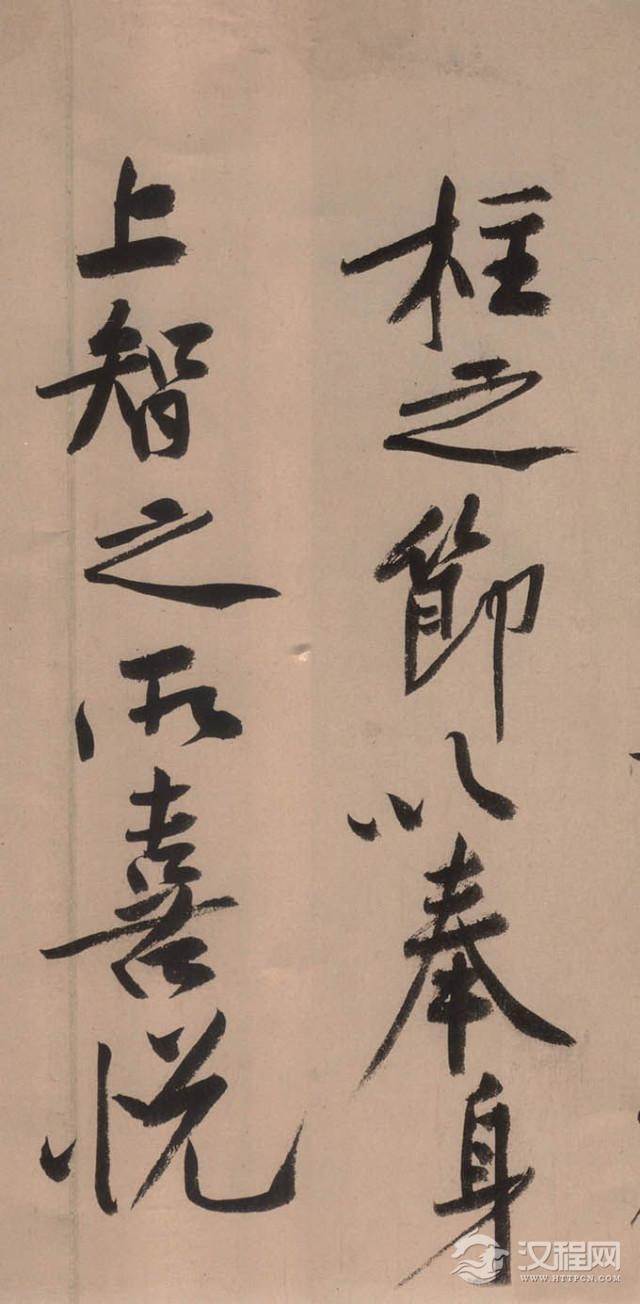 柱之節以奉身
上智之所喜悦
汉程网
WWW.HTTPCN.COM